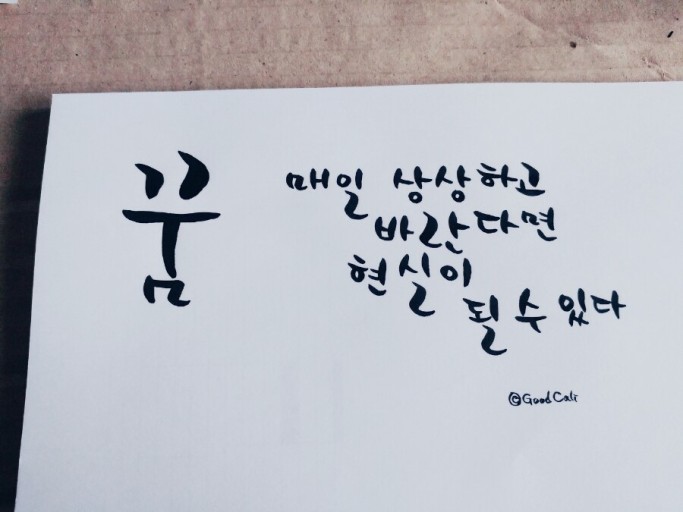 꿈
매일 상상하고
바란다면
현실이
될 수 있다
©GoodCali